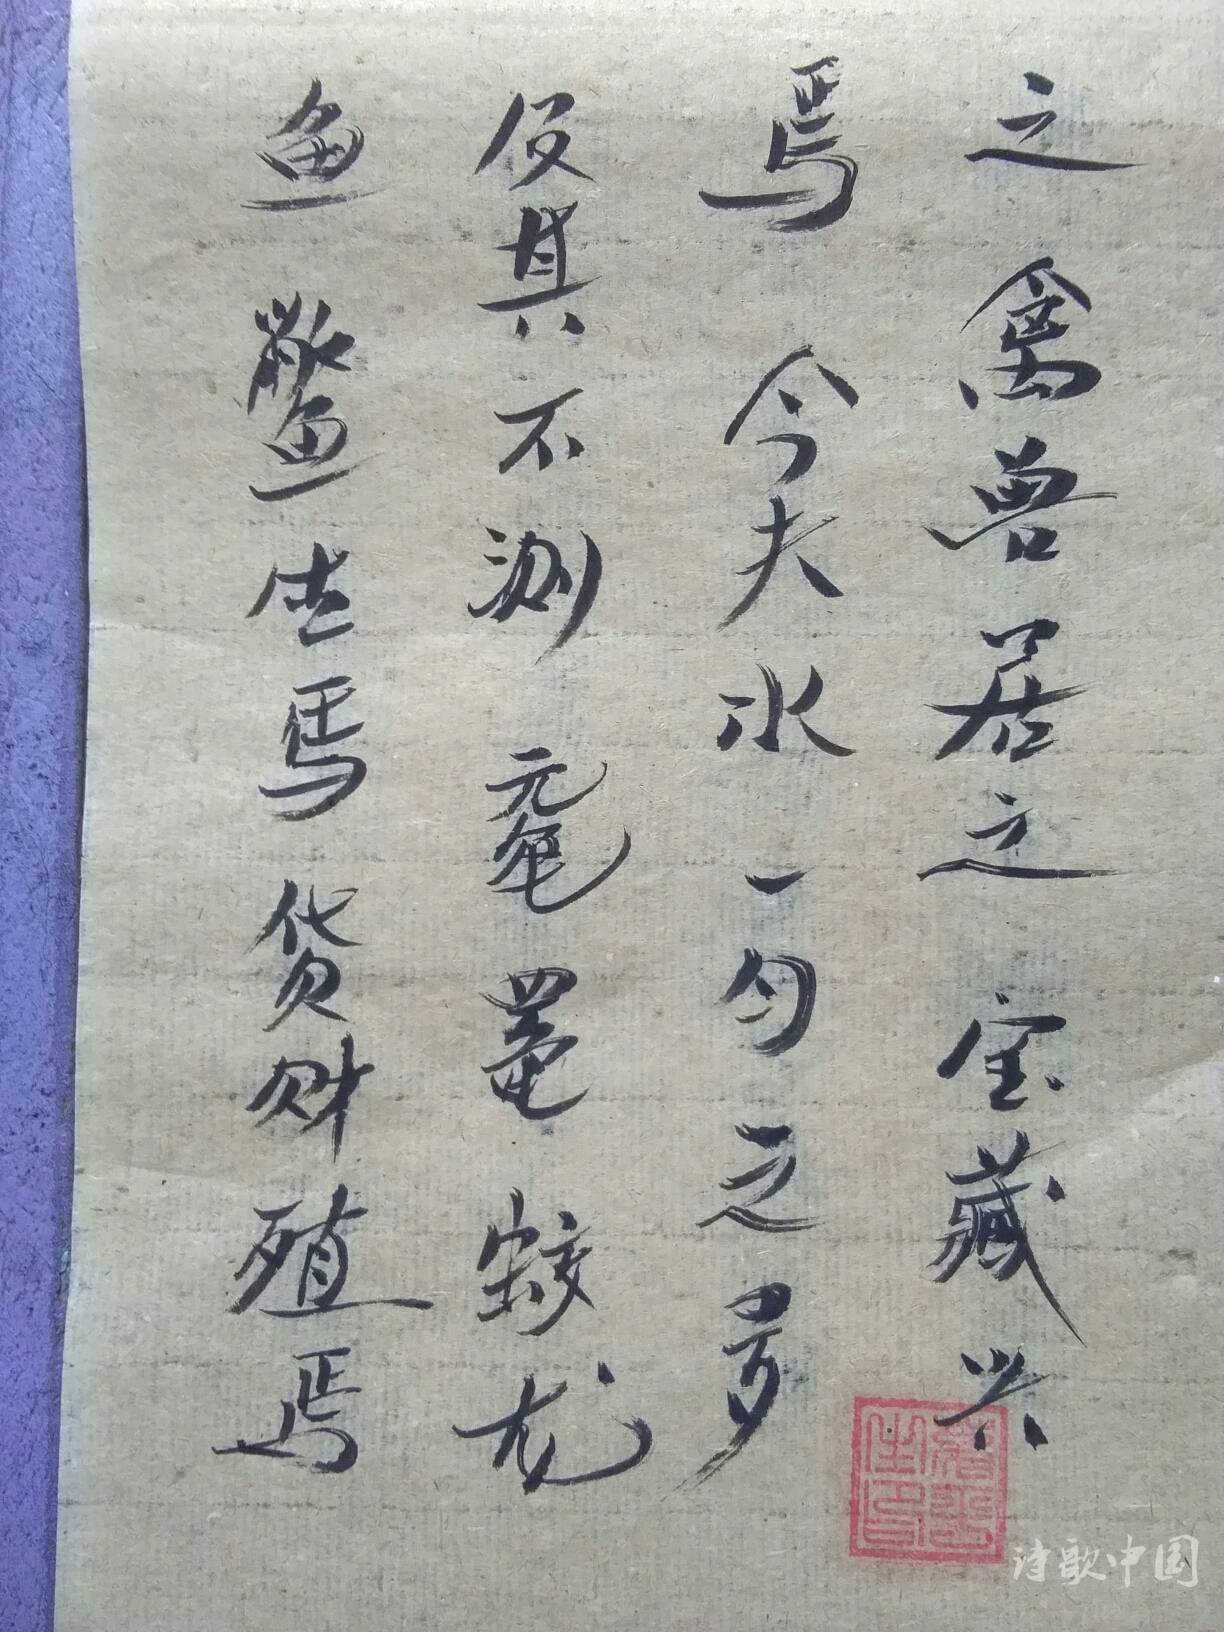 之禽兽居之宝藏兴
焉今夫水一勺之多
及其不测鼋鼍蛟龙
鱼鳖生焉货财殖焉
诗歌中国